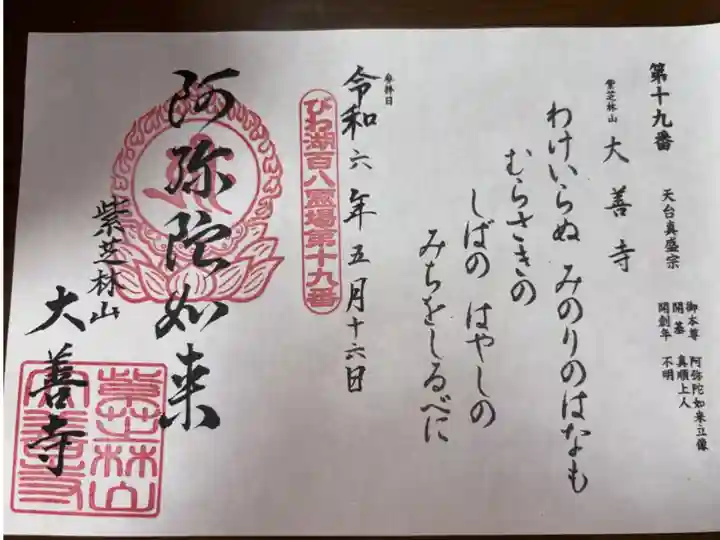 第十九番
紫芝林山 大善寺 天台真盛宗
御本尊 阿弥陀如来立像
開基 真順上人
開創年 不明
わけいらぬ みのりのはなも
むらさきの
しばの はやしの
みちをしるべに
参拝日
令和六年五月十六日
びわ湖百八霊場第十九番
阿弥陀如来
紫芝林山
大善寺
紫芝林山
大善寺